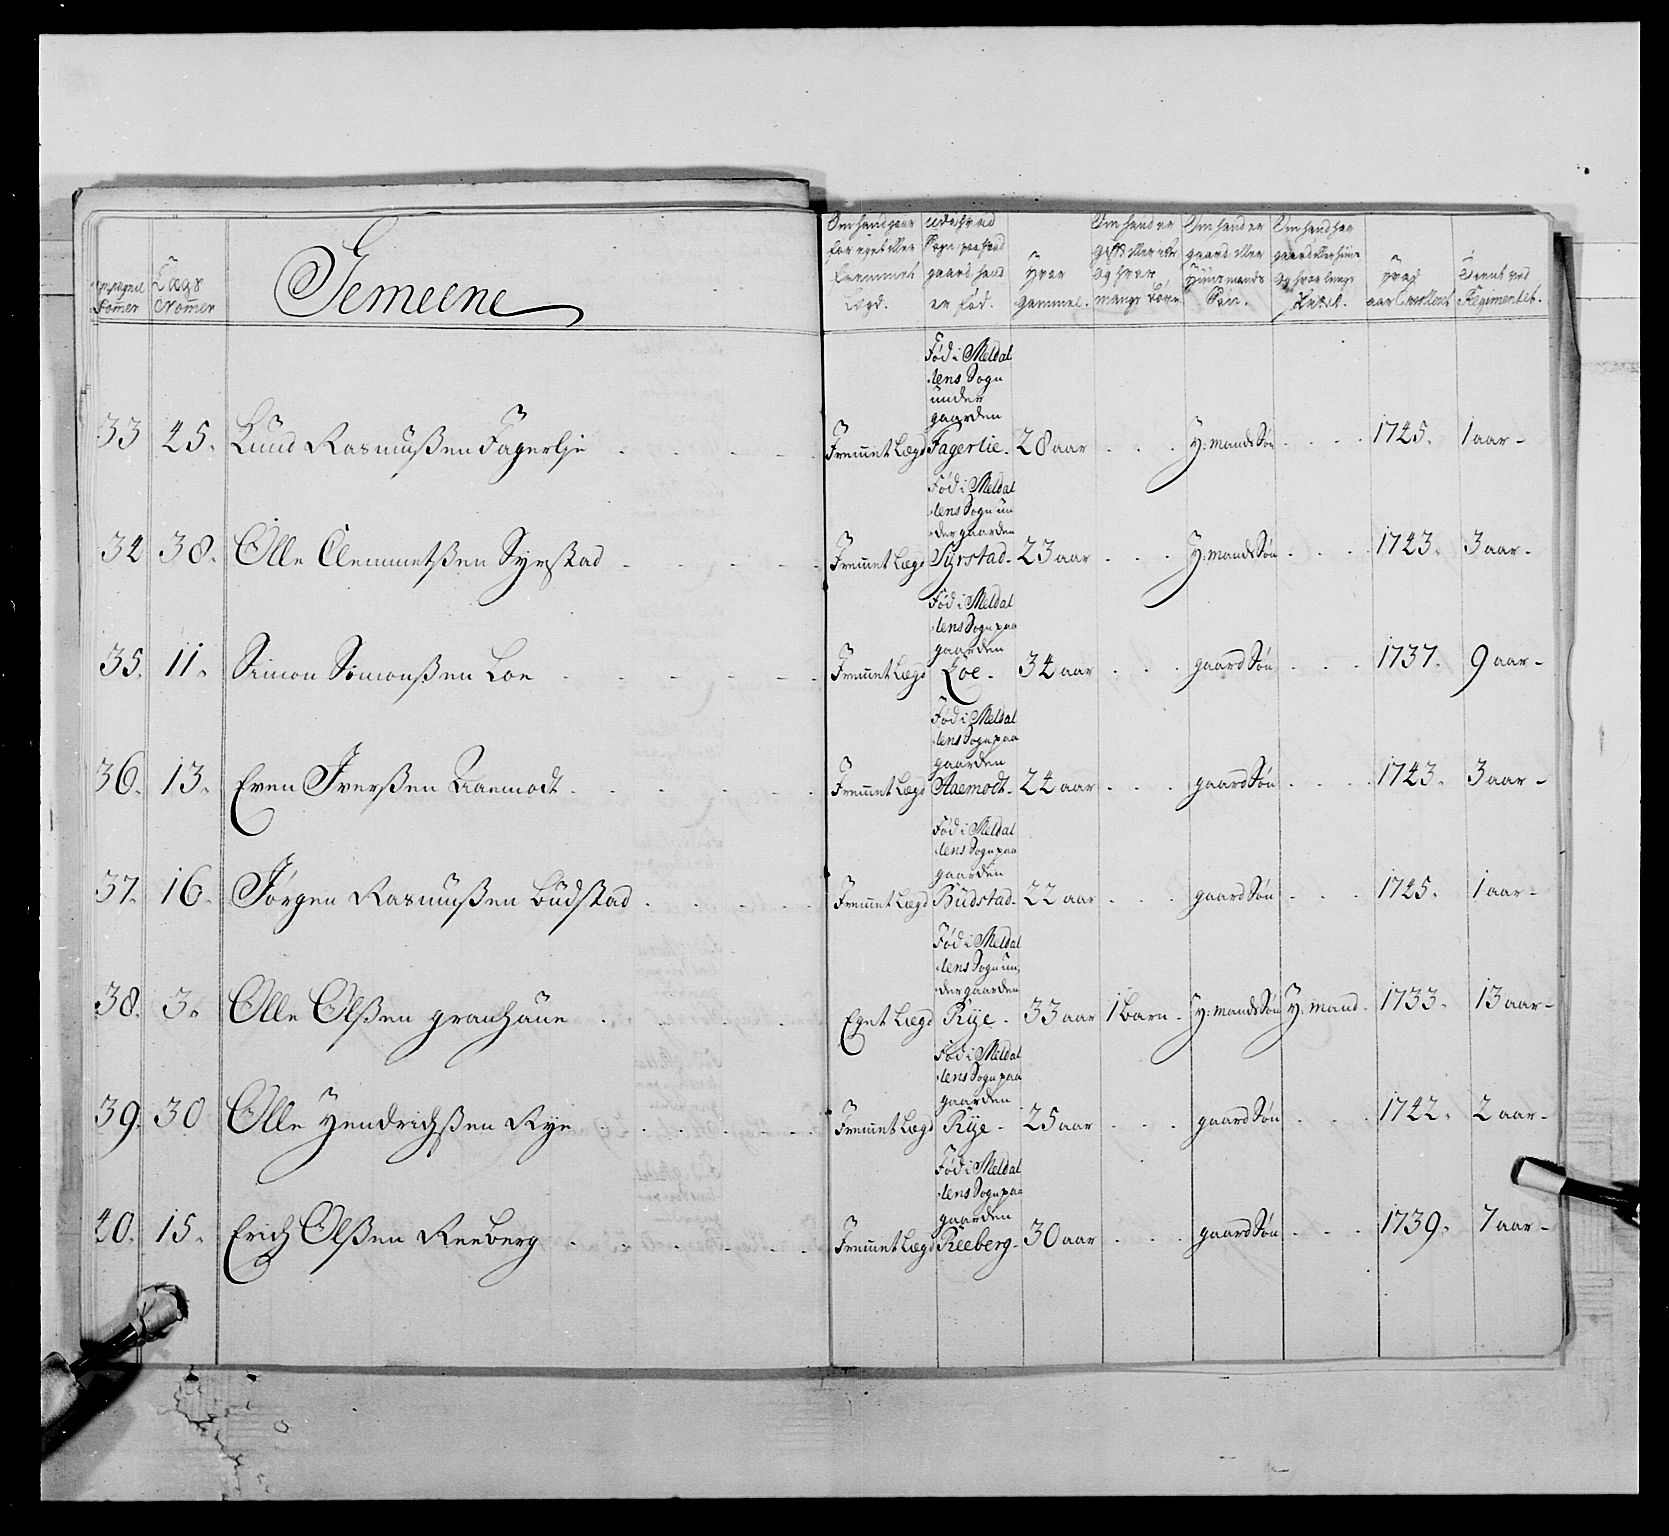 Compagnie Nommer
Lægs Nommer
Gemeene
Om hand gaar for eget eller fremmet Lægd.
Udi hvad Sogn, paa hvad gaard hand er fød.
Hvor gammel.
Om hand er gift eller ikke og hvor mange Børn
Om hand er gaard eller Huusmands Søn.
Om hand har gaard eller huus og hvor lenge
Hvad aar Enrollert
Tient ved Regimentet.
33 45. Knud Rasmusßen Fagerlje . . . . . Fremmet Lægd Fød i Meldalens Sogn under gaarden Fagerlie. 28 aar . . . H: mands Søn . . . . 1745. 1 aar-
34 38. Olle Clemmetsßen Syrstad . . . . . Fremmet Lægd Fød i Meldalens Sogn under gaarden Syrstad. 23 aar . . . H: mands Søn . . . . 1743. 3 aar-
35. 11. Simon Simonsßen Loe . . . . . Fremmet Lægd Fød i Meldalens Sogn paa gaarden Loe. 34 aar . . . gaard Søn . . . 1737. 9 aar-
36. 13. Even Iversßen Aaemodt . . . . . Fremmet Lægd Fød i Meldalens Sogn paa gaarden Aaemodt. 24 aar . . . gaard Søn . . . 1743. 3 aar-
37. 16. Jørgen Rasmusßen Budstad . . . . Fremmet Lægd Fød i Meldalens Sogn paa gaarden Budstad. 22 aar . . . gaard Søn . . . 1745. 1 aar-
38. 3. Olle Olsßen granhaue . . . . Eget Lægd Fød i Meldalens Sogn under gaarden Rye. 33 aar 1 Barn. H: mands Søn H: mand. 1733. 13 aar-
39. 30 Olle Hendrichsßen Rye . . . . . Fremmet Lægd Fød i Meldalens Sogn paa gaarden Rye. 25 aar . . . gaard Søn . . . 1742. 2 aar-
40. 15. Erich Olsßen Reeberg . . . . . Fremmet Lægd Fød i Meldalens Sogn paa gaarden Reeberg. 30 aar . . . gaard Søn . . . 1739. 7 aar-